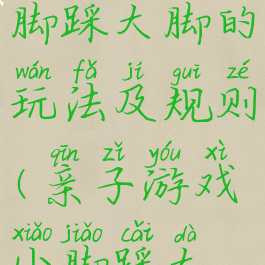 脚踩大脚的
wán fǎ jí guī zé
玩法及规则
qīn zǐ yóu xì
(亲子游戏
xiǎo jiǎo cǎi dà
小脚踩大